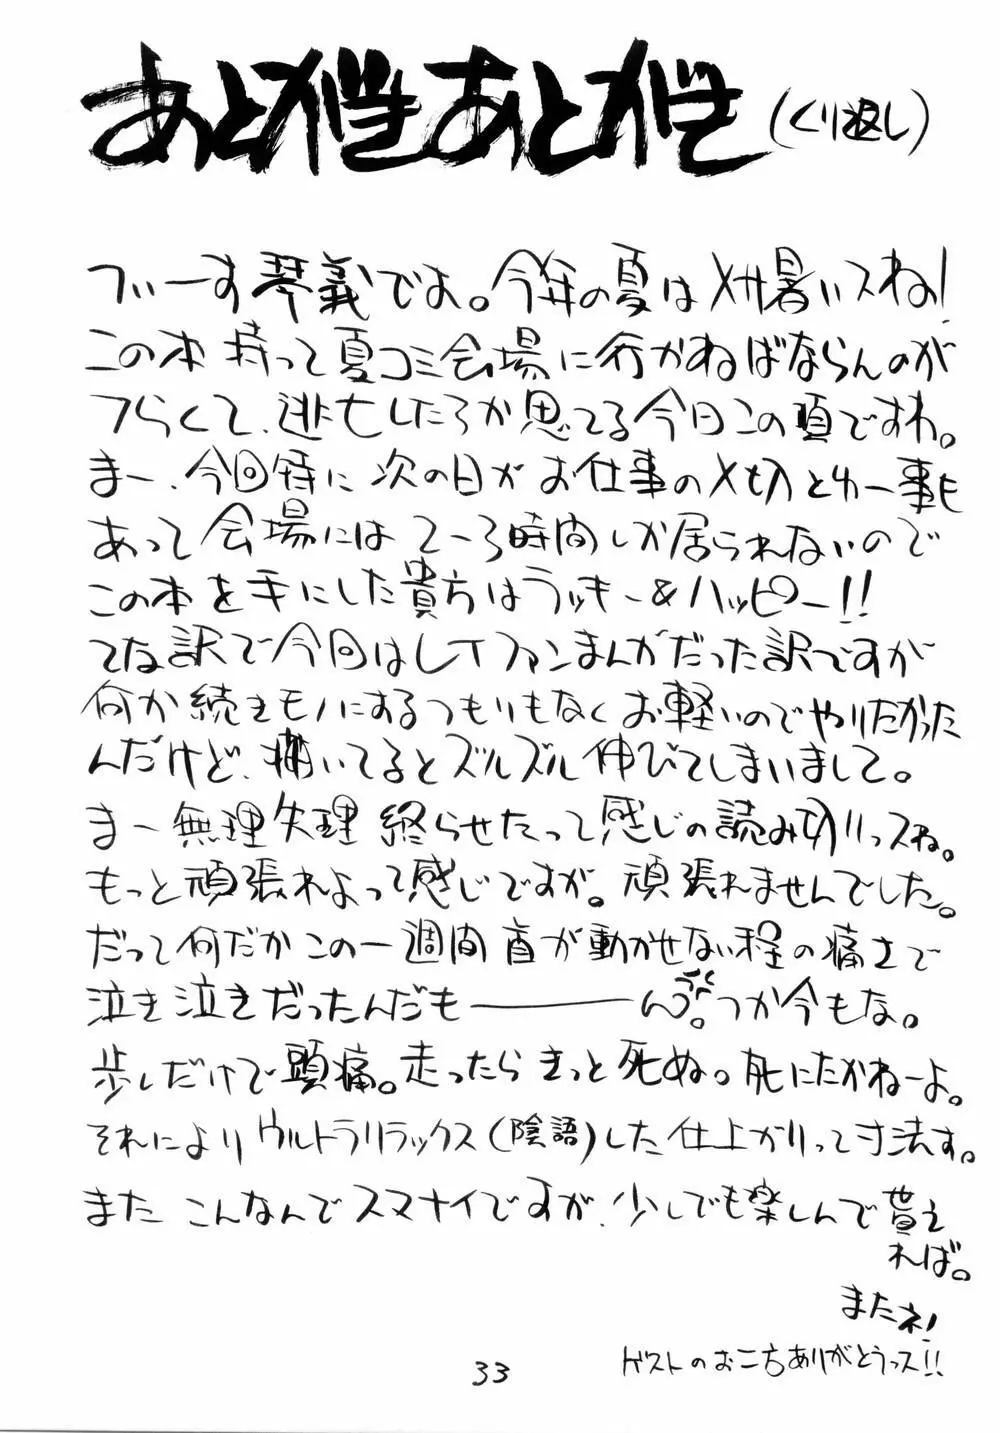 あとがきあとがき(くり返し)
づぃーす琴義でよ。今年の夏はメサ暑いスね!
この本持って夏コミ会場に行かねばならんのが
つらくて、逃亡したろか思てる今日この頃ですわ。
まー、今回特に次の日がお仕事の〆切とゆー事も
あって会場には2〜3時間しか居られないので
この本を手にした貴方はラッキー&ハッピー!!
てな訳で今回はレイファンまんがだった訳ですが
何か続きモノにするつもりもなくお軽いのでやりたかった
んだけど、描いてるとズルズル伸びてしまいまして。
まー無理矢理終らせたって感じの読み切りっスね。
もっと頑張れよって感じですが。頑張れませんでした。
だって何だかこの一週間首が動かせない程の痛さで
泣き泣きだったんだも――――ん。つか今もな。
歩くだけで頭痛。走ったらきっと死ぬ。死にたかねーよ。
それによりウルトラリラックス(陰語)した仕上がりって寸法す。
またこんなんでスマナイですが、少しでも楽しんで貰え
れば。
またネ!
ゲストのお二方ありがとうっス!!
33